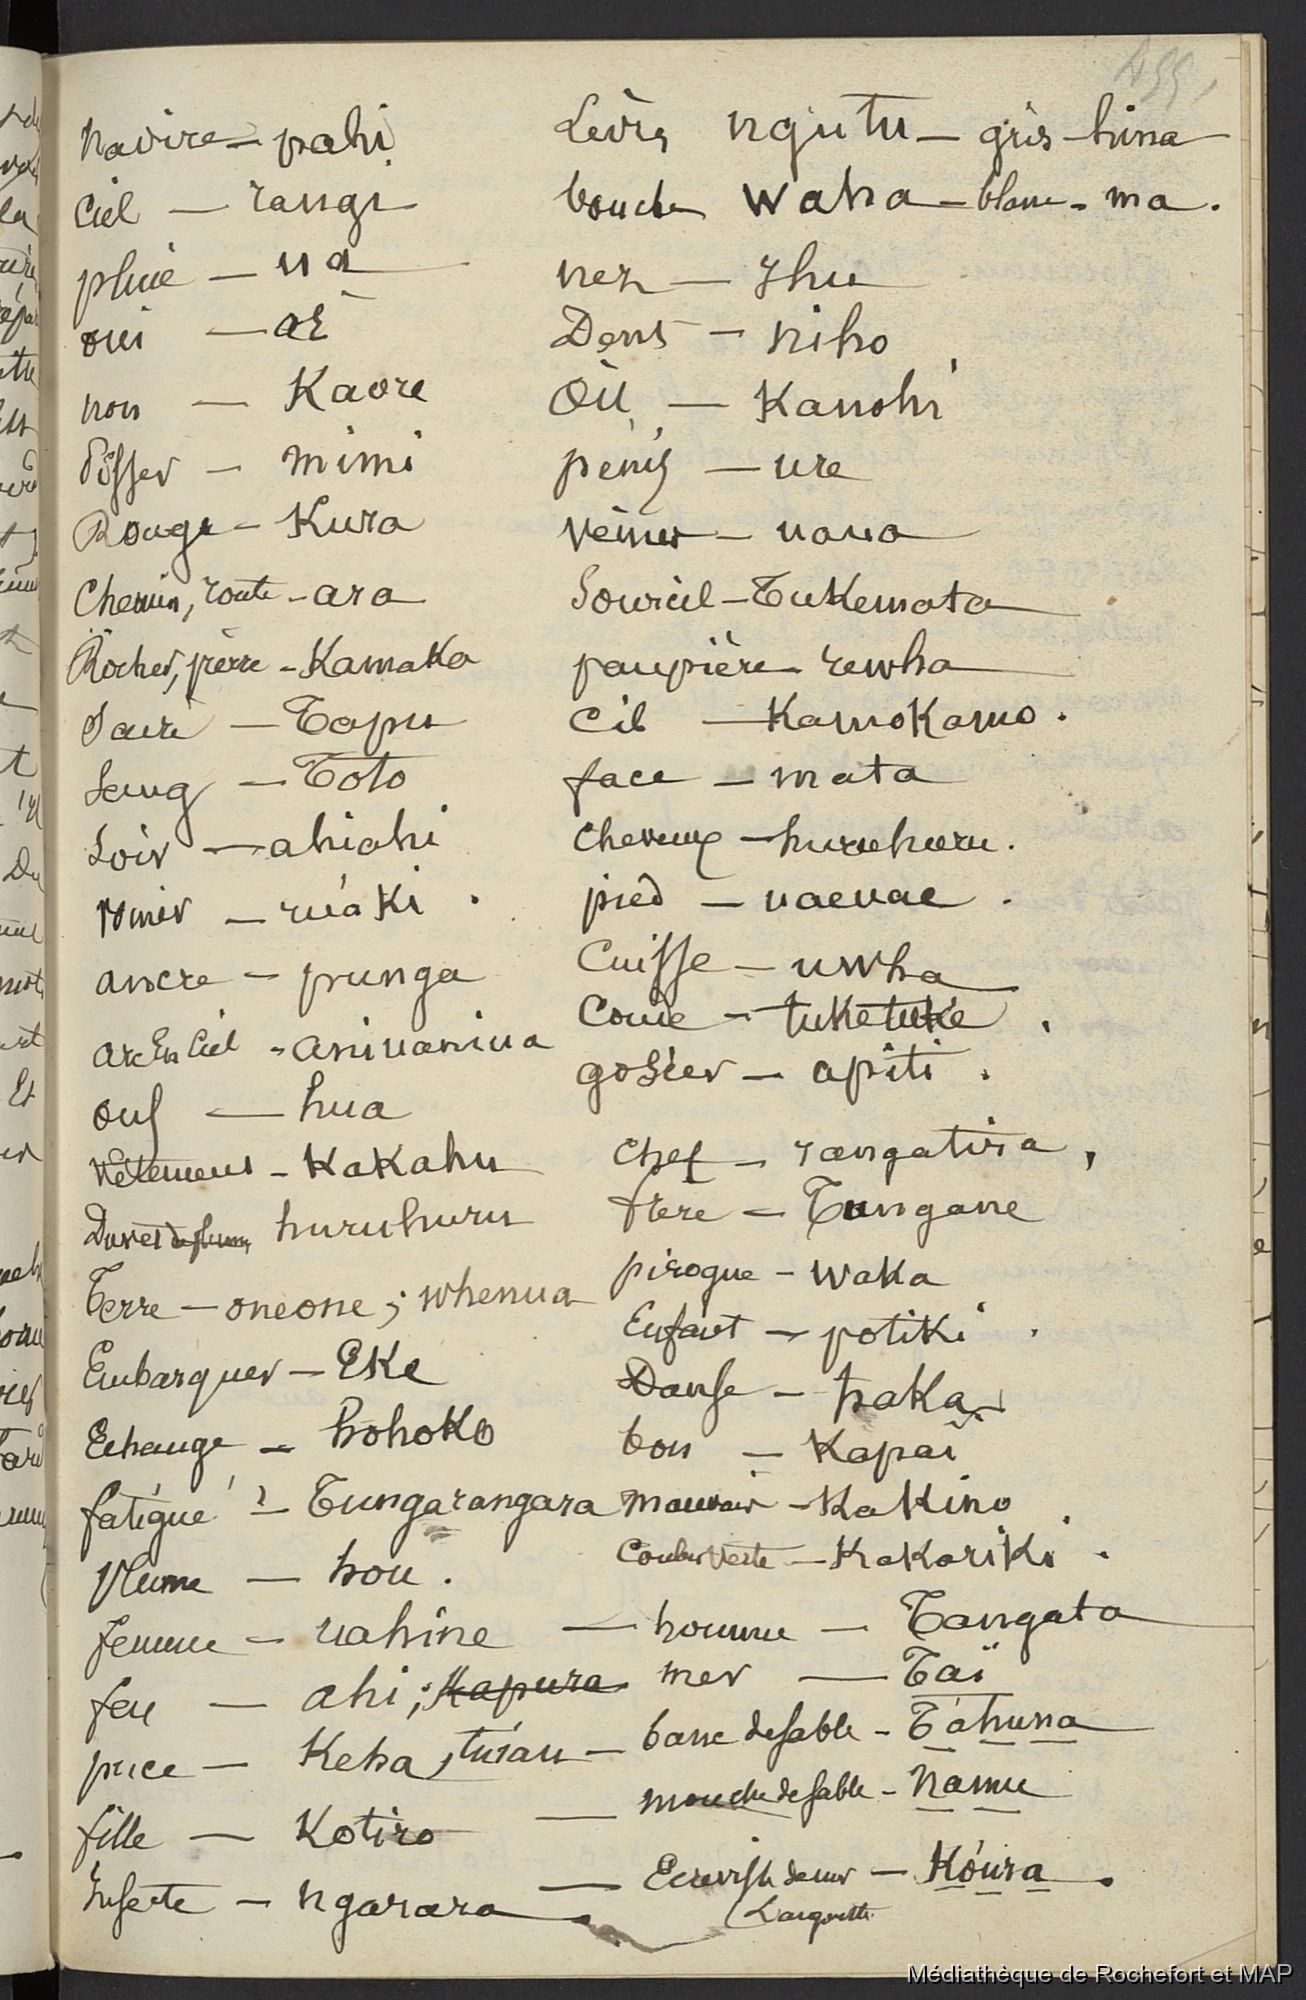 455.
Navire - pahi
Ciel - rangi
pluie - ua
oui - aè
non - Kaore
Pisser - mimi
Rouge - Kura
Chemin, route - ara
Rocher, pierre - Kamaka
Sacré - Tapu
Sang - Toto
Soir - ahiahi
vomir - ruáki.
ancre - punga
arc En Ciel - anivaniva
œuf - hua
Vêtement - Kakahu
Duvet de plume huruhuru
Terre - oneone; whenua
Embarquer - Eke
Echange - hohoko
fatigué - Tungarangara
Plume - hou.
femme - vahine
feu - ahi; Kapura
puce - Keha, tuíau -
fille - Kotiro
Insecte - ngarara
Lèvres ngutu - gris - hina
bouche waha - blanc - ma.
nez - Ihu
Dents - niho
Œil - Kanohi
pénis - ure
Veines - uaua
Sourcil - Tukemata
paupière - rewha
Cil - Kamokamo.
face - mata
Cheveux - huruhuru.
pied - vaevae.
Cuisse - uwha
Coude - tuketuke.
gosier - apiti.
Chef - rangatira,
frère - Tungane
pirogue - waka
Enfant - potiki.
Danse - haka
bon - Kapaï
mauvais - Kakino.
Couleur Verte - Kakariki.
- homme - Tangata
mer - Taï
banc de sable - Táhuna
- mouche de sable - Namu
- Ecrevisse de mer - Kóura.
(Langouste
Médiathèque de Rochefort et MAP